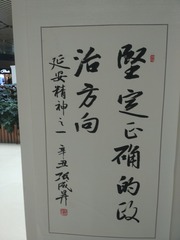 堅定正确的政
治方向
延安精神之一 辛丑 張成昇